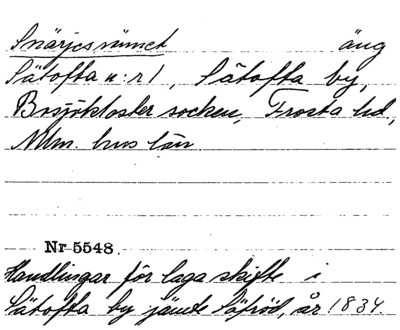 Snärjesrämet äng
Sätofta n:r 1, Sätofta by,
Bosjökloster socken, Frosta hd,
Mlm. hus län.
Nr 5548.
Handlingar för laga skifte i
Sätofta by jämte Säfröd, år 1834.